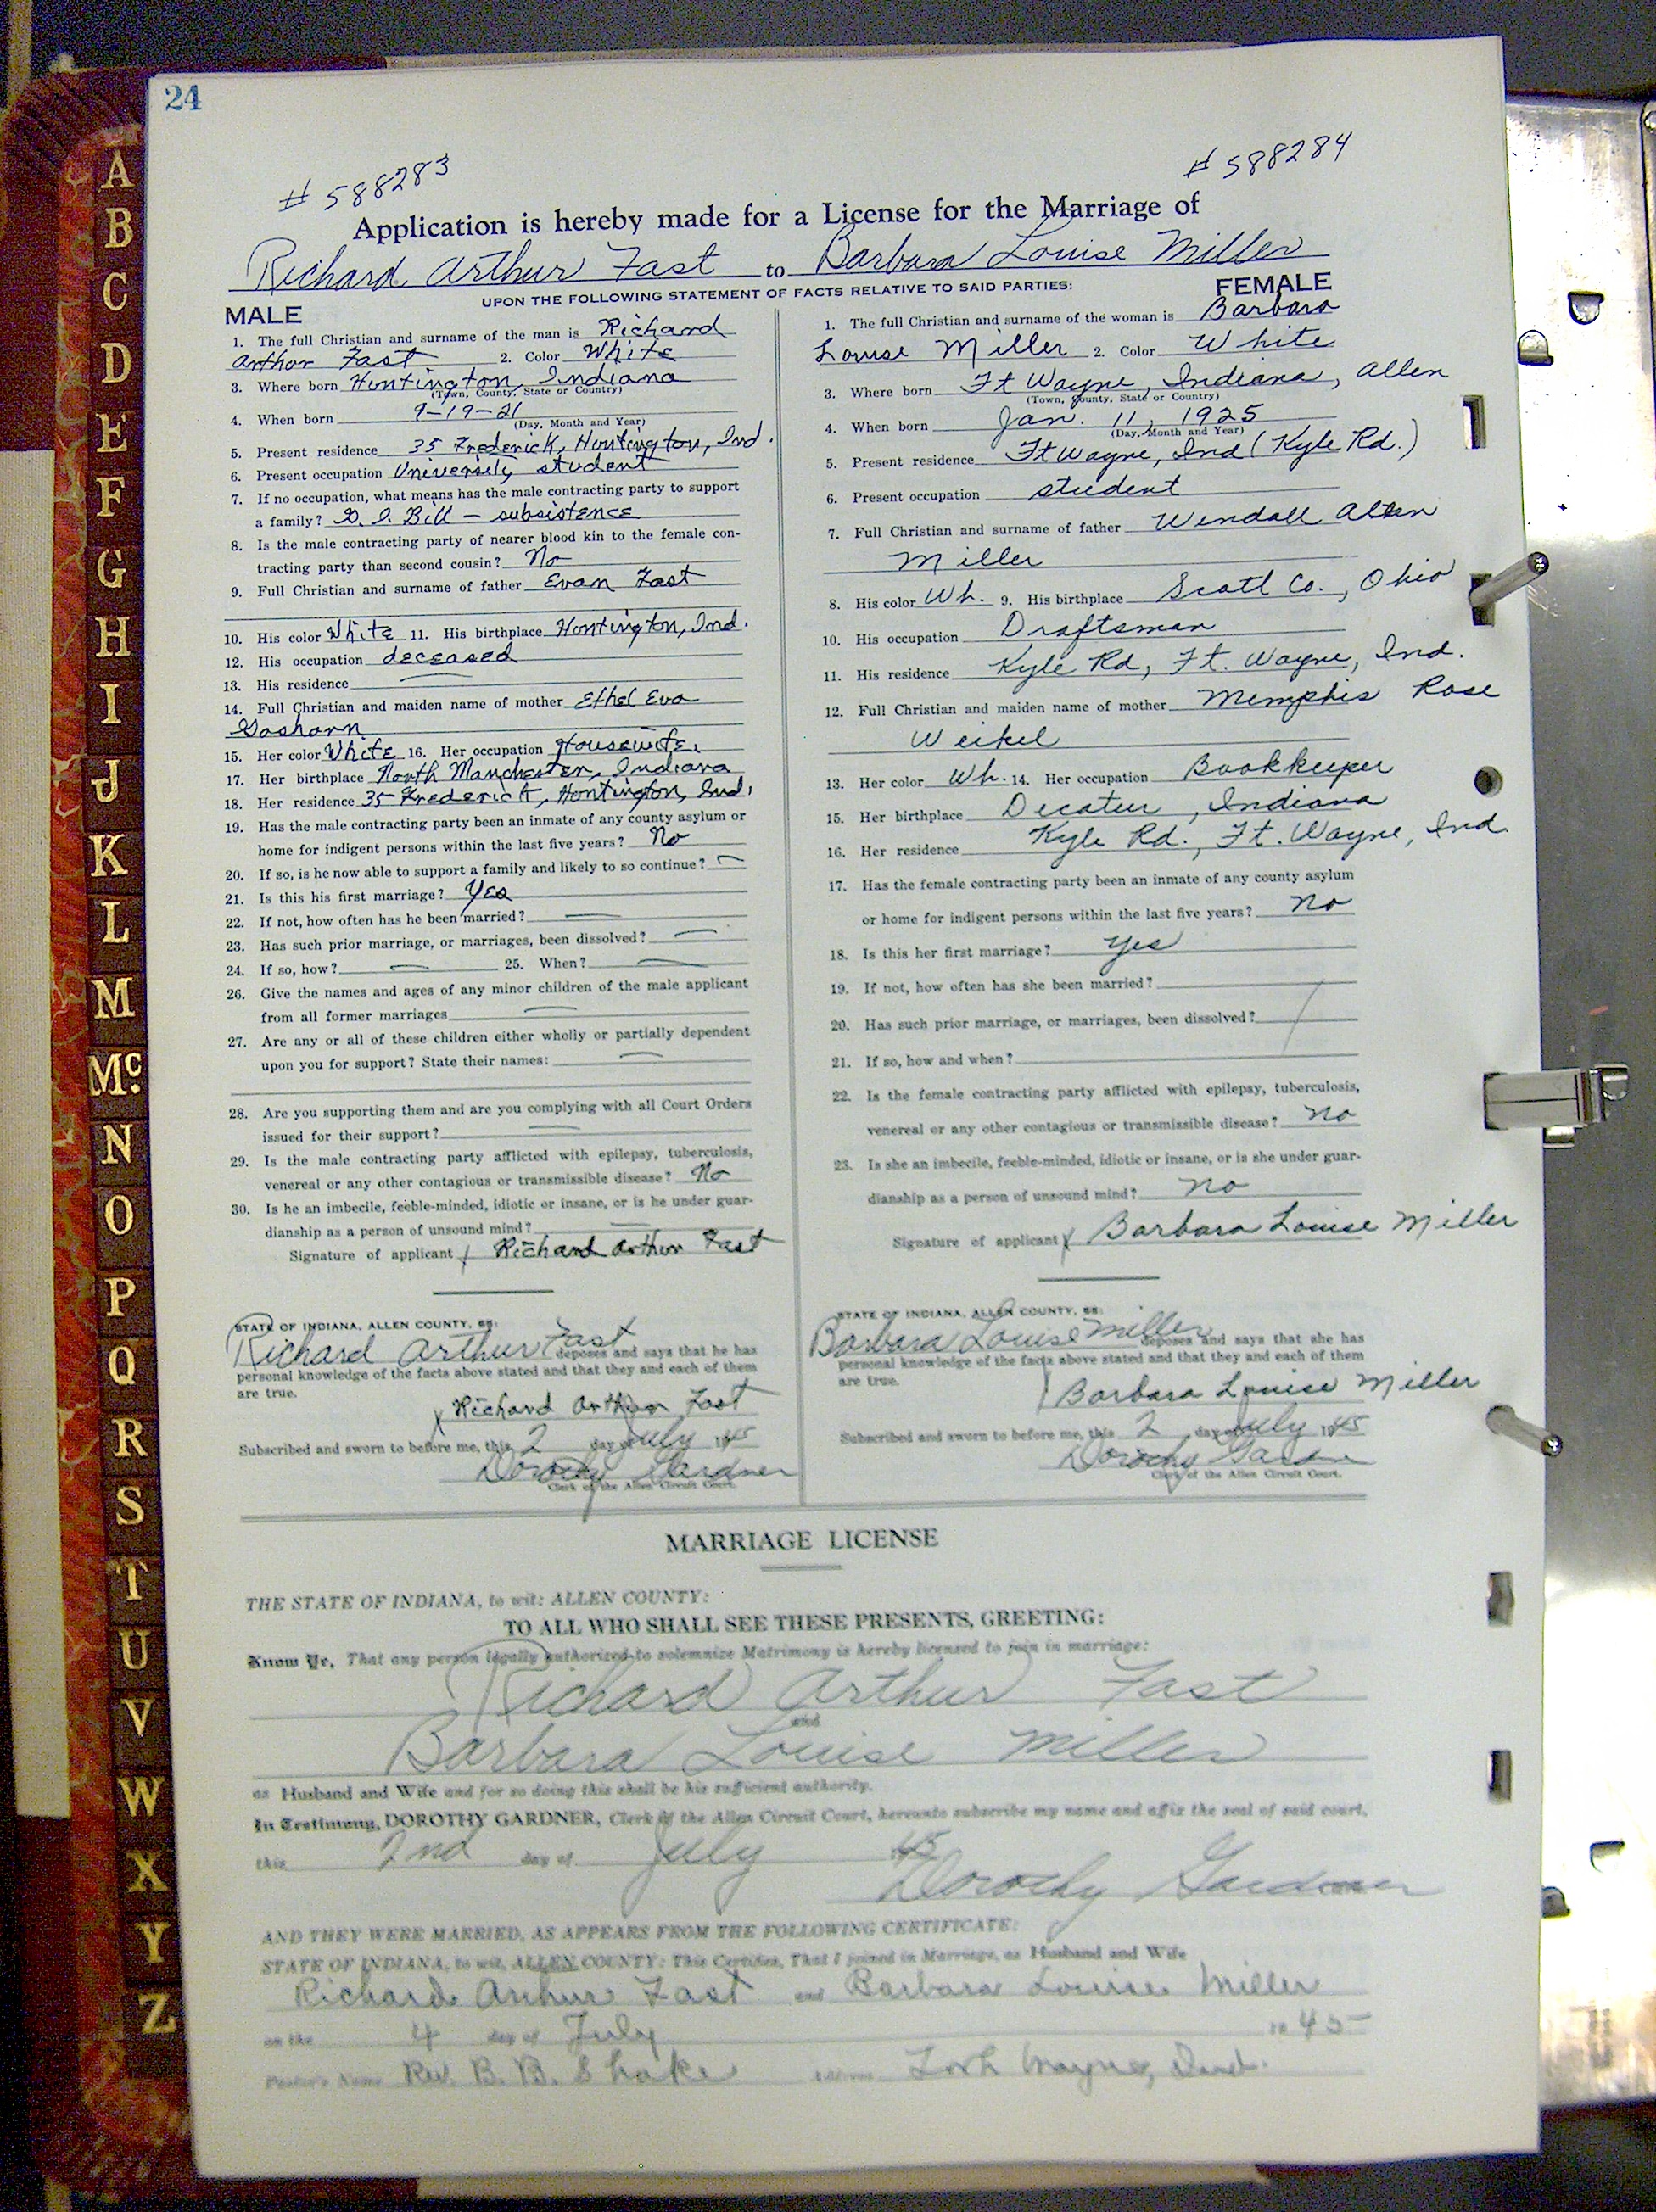 24
# 588283
# 588284
Application is hereby made for a License for the Marriage of
Richard Arthur Fast to Barbara Louise Miller
UPON THE FOLLOWING STATEMENT OF FACTS RELATIVE TO SAID PARTIES:
MALE
1. The full Christian and surname of the man is Richard
Arthur Fast 2. Color White
3. Where born Huntington, Indiana
(Town, County, State or Country)
4. When born 9-19-21
(Day, Month and Year)
5. Present residence 35 Frederick, Huntington, Ind.
6. Present occupation University student
7. If no occupation, what means has the male contracting party to support
a family? G. I. Bill - subsistence
8. Is the male contracting party of nearer blood kin to the female con-
tracting party than second cousin? No
9. Full Christian and surname of father Evan Fast
10. His color White 11. His birthplace Huntington, Ind.
12. His occupation deceased
13. His residence
14. Full Christian and maiden name of mother Ethel Eva
Goshorn
15. Her color White 16. Her occupation Housewife
17. Her birthplace North Manchester, Indiana
18. Her residence 35 Frederick, Huntington, Ind.
19. Has the male contracting party been an inmate of any county asylum or
home for indigent persons within the last five years? No
20. If so, is he now able to support a family and likely to so continue? —
21. Is this his first marriage? Yes
22. If not, how often has he been married? —
23. Has such prior marriage, or marriages, been dissolved? —
24. If so, how? — 25. When? —
26. Give the names and ages of any minor children of the male applicant
from all former marriages —
27. Are any or all of these children either wholly or partially dependent
upon you for support? State their names: —
28. Are you supporting them and are you complying with all Court Orders
issued for their support? —
29. Is the male contracting party afflicted with epilepsy, tuberculosis,
venereal or any other contagious or transmissible disease? No
30. Is he an imbecile, feeble-minded, idiotic or insane, or is he under guar-
dianship as a person of unsound mind? —
Signature of applicant x Richard Arthur Fast
STATE OF INDIANA, ALLEN COUNTY, SS:
Richard Arthur Fast deposes and says that he has
personal knowledge of the facts above stated and that they and each of them
are true.
x Richard Arthur Fast
Subscribed and sworn to before me, this 2 day of July 1945
Dorothy Gardner
Clerk of the Allen Circuit Court.
FEMALE
1. The full Christian and surname of the woman is Barbara
Louise Miller 2. Color White
3. Where born Ft Wayne, Indiana, Allen
(Town, County, State or Country)
4. When born Jan. 11, 1925
(Day, Month and Year)
5. Present residence Ft Wayne, Ind (Kyle Rd.)
6. Present occupation student
7. Full Christian and surname of father Wendall
Miller
8. His color Wh. 9. His birthplace Scott Co., Ohio
10. His occupation Draftsman
11. His residence Kyle Rd, Ft. Wayne, Ind.
12. Full Christian and maiden name of mother Memphis Rose
Weikel
13. Her color Wh. 14. Her occupation Bookkeeper
15. Her birthplace Decatur, Indiana
16. Her residence Kyle Rd., Ft. Wayne, Ind.
17. Has the female contracting party been an inmate of any county asylum
or home for indigent persons within the last five years? no
18. Is this her first marriage? yes
19. If not, how often has she been married?
20. Has such prior marriage, or marriages, been dissolved? /
21. If so, how and when?
22. Is the female contracting party afflicted with epilepsy, tuberculosis,
venereal or any other contagious or transmissible disease? no
23. Is she an imbecile, feeble-minded, idiotic or insane, or is she under guar-
dianship as a person of unsound mind? no
Signature of applicant x Barbara Louise Miller
STATE OF INDIANA, ALLEN COUNTY, SS:
Barbara Louise Miller deposes and says that she has
personal knowledge of the facts above stated and that they and each of them
are true.
Barbara Louise Miller
Subscribed and sworn to before me, this 2 day of July 1945
Dorothy Gardner
Clerk of the Allen Circuit Court.
MARRIAGE LICENSE
THE STATE OF INDIANA, to wit: ALLEN COUNTY:
TO ALL WHO SHALL SEE THESE PRESENTS, GREETING:
Know Ye, That any person legally authorized to solemnize Matrimony is hereby licensed to join in marriage:
Richard Arthur Fast
and
Barbara Louise Miller
as Husband and Wife and for so doing this shall be his sufficient authority.
In Testimony, DOROTHY GARDNER, Clerk of the Allen Circuit Court, hereunto subscribe my name and affix the seal of said court,
this 2nd day of July 45
Dorothy Gardner
AND THEY WERE MARRIED, AS APPEARS FROM THE FOLLOWING CERTIFICATE:
STATE OF INDIANA, to wit, ALLEN COUNTY: This Certifies, That I joined in Marriage, as Husband and Wife
Richard Arthur Fast and Barbara Louise Miller
on the 4 day of July 1945
Pastor's Name Rev. B. B. Shake Address Fort Wayne, Ind.
A
B
C
D
E
F
G
H
I
J
K
L
M
Mc
N
O
P
Q
R
S
T
U
V
W
X
Y
Z